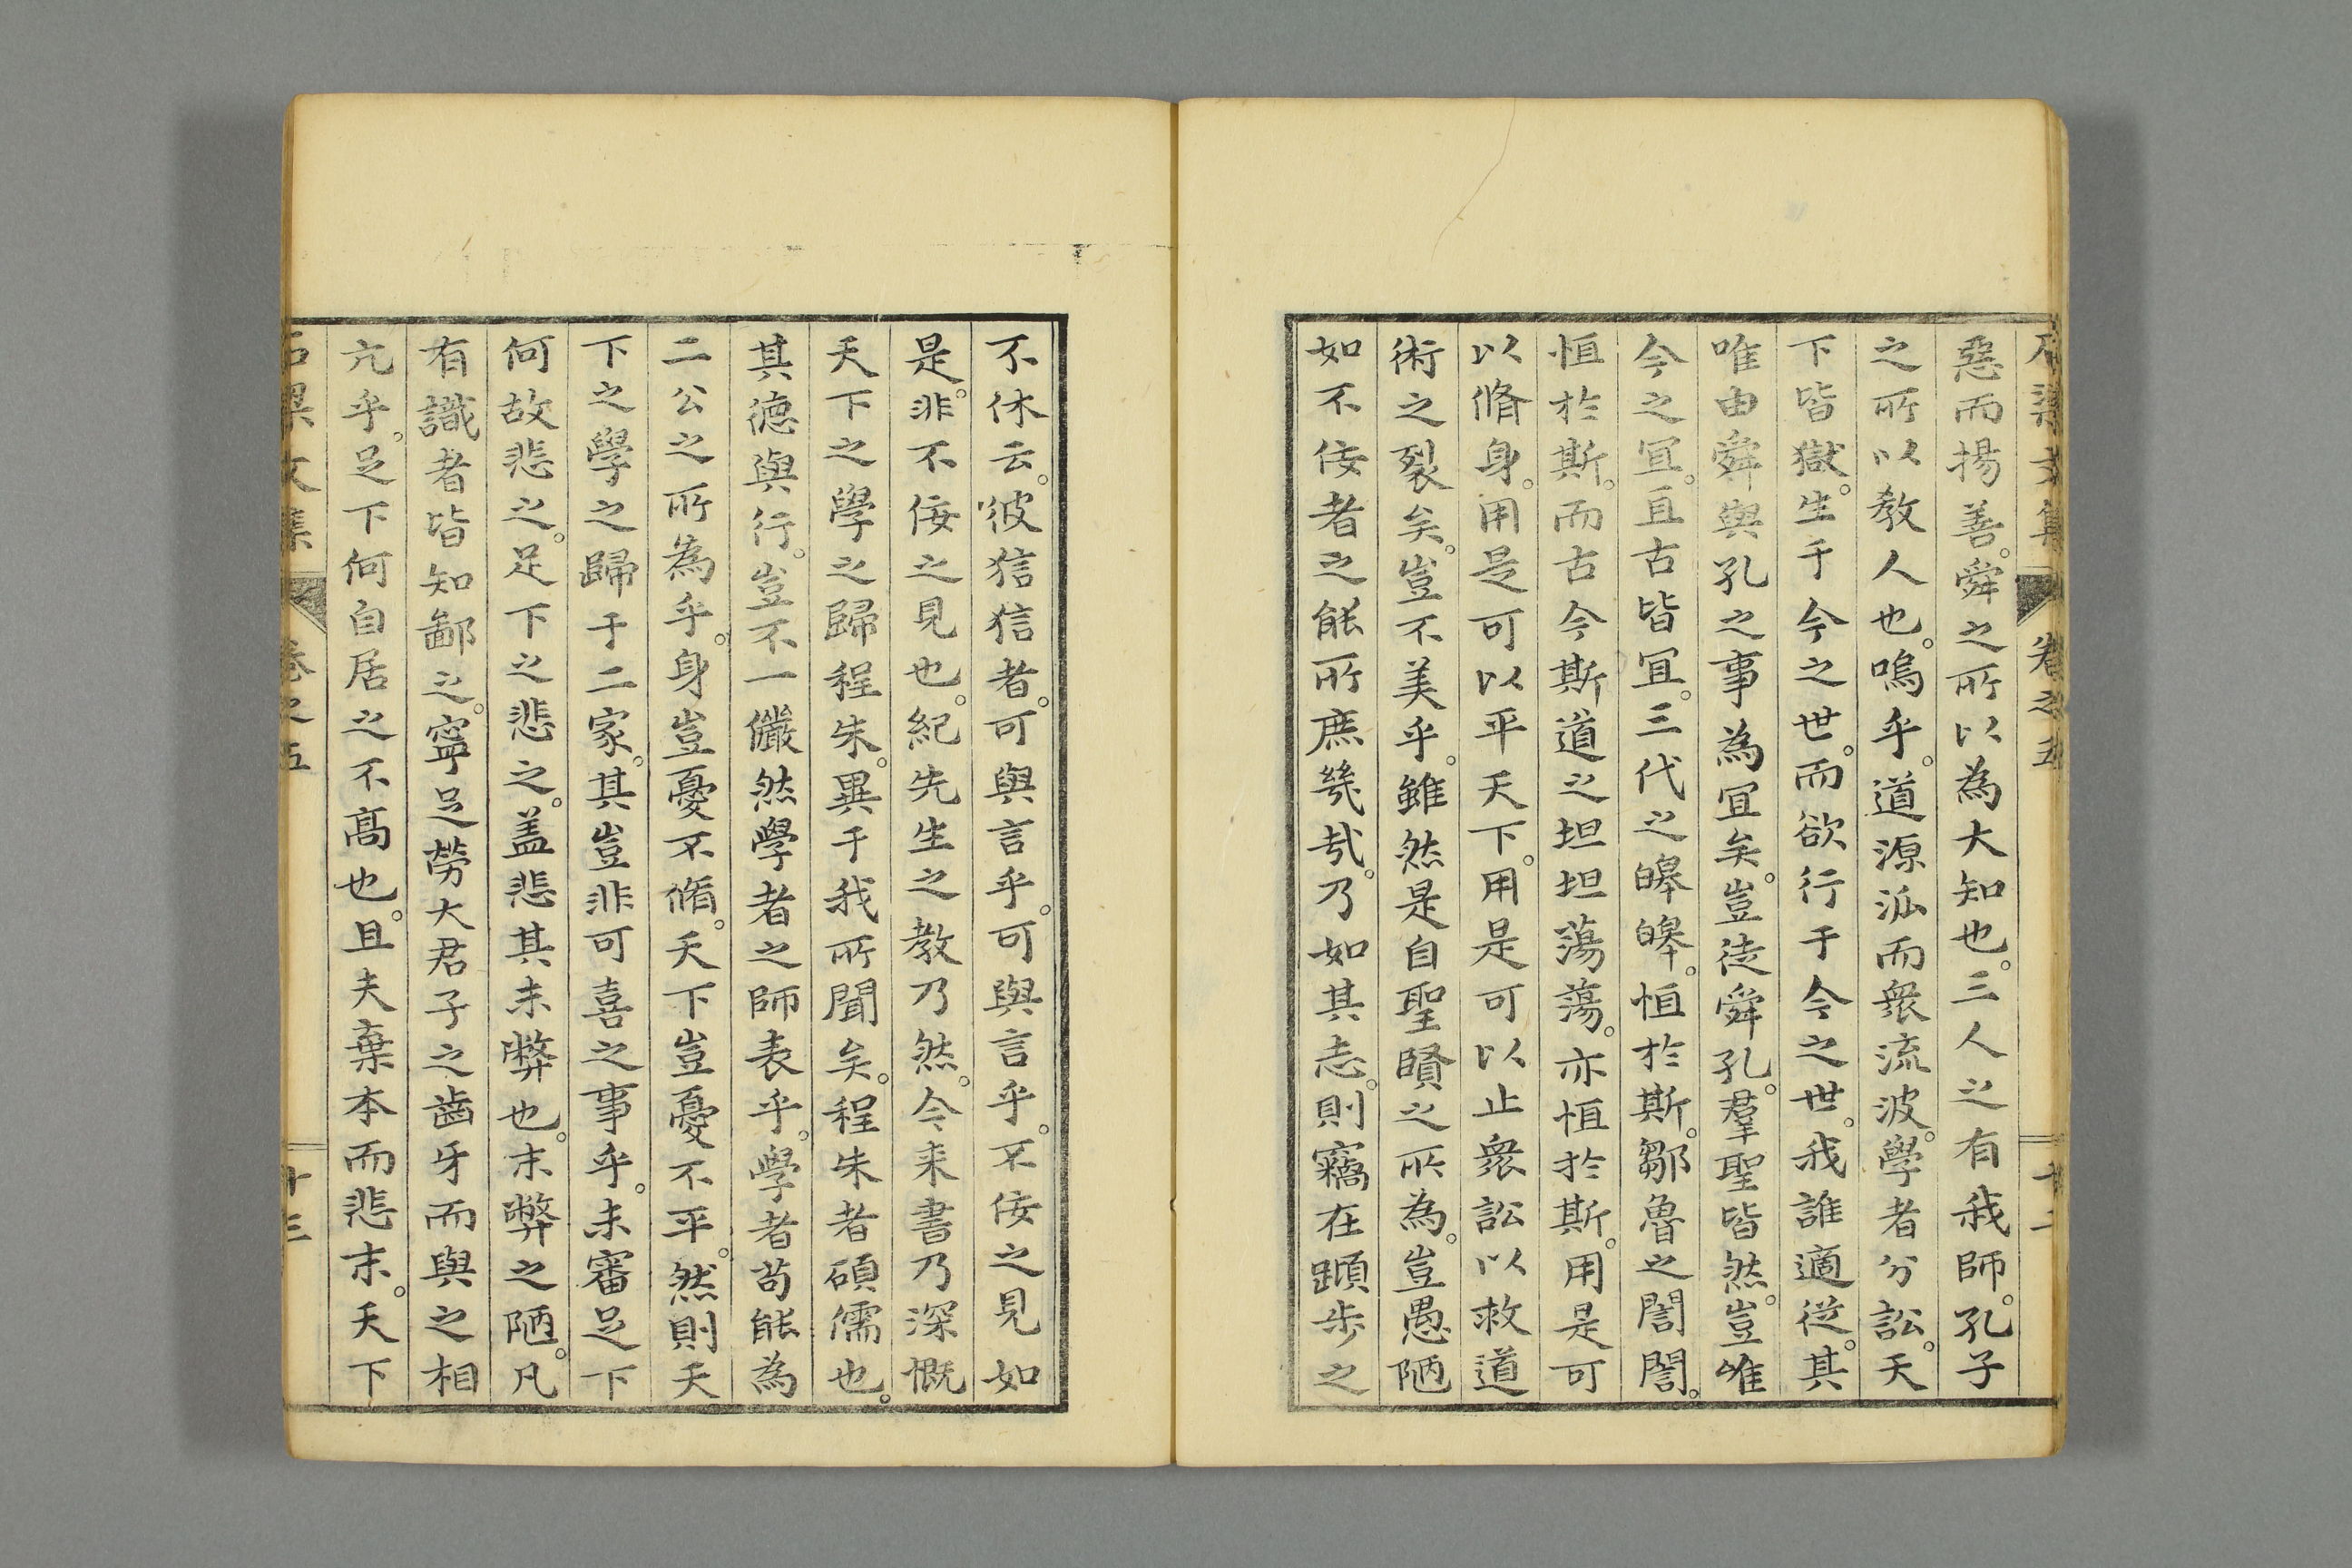 惡而揚善。舜之所以為大知也。三人之有我師。孔子
之所以教人也。嗚乎。道源泒而衆流波。學者分訟。天
下皆獄。生于今之世。而欲行于今之世。我誰適從。其
唯由舜與孔之事為冝矣。豈徒舜孔。羣聖皆然。豈唯
今之冝。亘古皆冝。三代之皞皞。恒於斯。鄒魯之誾誾。
恒於斯。而古今斯道之坦坦蕩蕩。亦恒於斯。用是可
以脩身。用是可以平天下。用是可以止衆訟以救道
術之裂矣。豈不美乎。雖然是自聖賢之所為。豈愚陋
如不佞者之能所庶幾哉。乃如其志。則竊在蹞步之
不休云。彼狺狺者。可與言乎。可與言乎。不佞之見如
是。非不佞之見也。紀先生之教乃然。今来書乃深慨
天下之學之歸程朱。異于我所聞矣。程朱者碩儒也。
其德與行。豈不一儼然學者之師表乎。學者苟能為
二公之所為乎。身豈憂不脩。天下豈憂不平。然則天
下之學之歸于二家。其豈非可喜之事乎。未審足下
何故悲之。足下之悲之。盖悲其末弊也。末弊之陋。凡
有識者皆知鄙之。寧足勞大君子之齒牙而與之相
亢乎。足下何自居之不髙也。且夫棄本而悲末。天下
文集 卷之五 十三